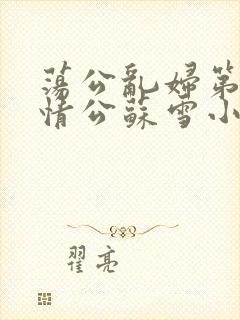 蕩公亂婦第
情公蘇雪小
翟亮